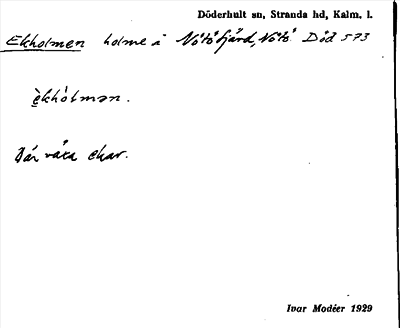 Döderhult sn, Stranda hd, Kalm. l.
Ekholmen holme å Nötöfjärd, Nötö. Död 573
èkhòlmən.
Där växa ekar.
Ivar Modéer 1929